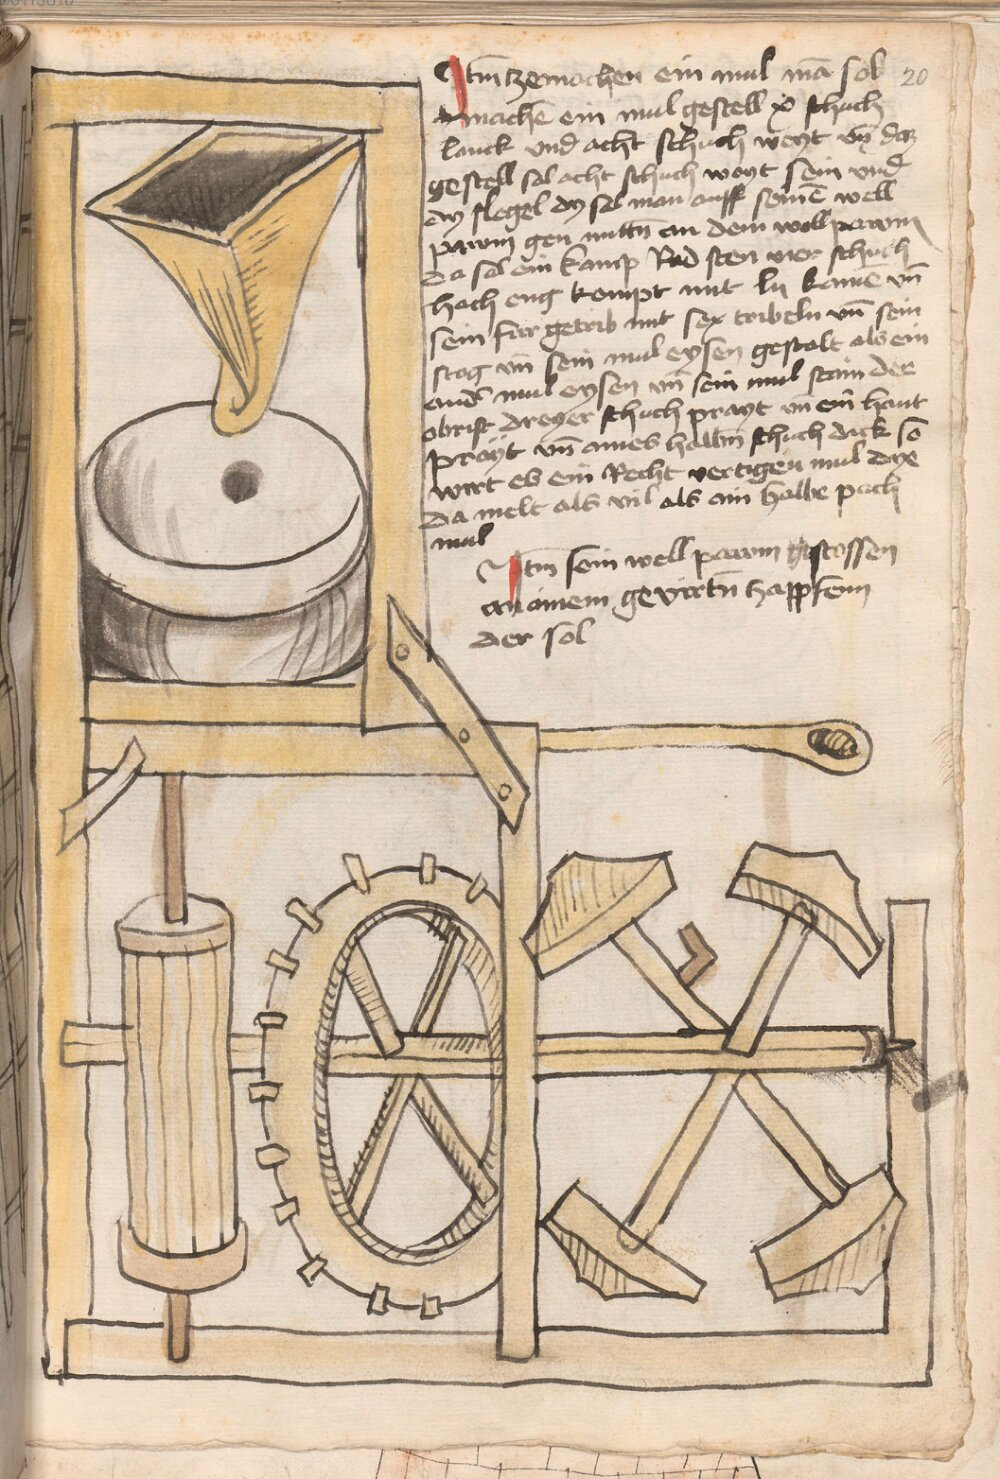 Itm zemachen ein mul ma sol 20
machē ein mul gestell x schuch
lanck vnd acht schuch weyt vn̄ daz
gestell sol acht schuch weyt sein vnd
dy flegel dy sol man auff seinē well
pawm gen mittn̄ an dem wellpawm
da sol ein kamp Rad sten vier schuch
hoch eng kompt mit lij kamē vn̄
sein furgetrib mit sex tribeln vn̄ sein
stag vn̄ sein mul eysen gestalt als ein
ander mul eysen vn̄ sein mul stain der
obrist dreyer schuch prayt vn̄ ein hant
prayt vn̄ aines halbn̄ schuch dick so
wirt es ein Recht vertigen mul dye
da melt als vil als ain halbe pach
mul
Itm sein well pawm gestossen
an ainem gevirtn̄ happfenn
der sol